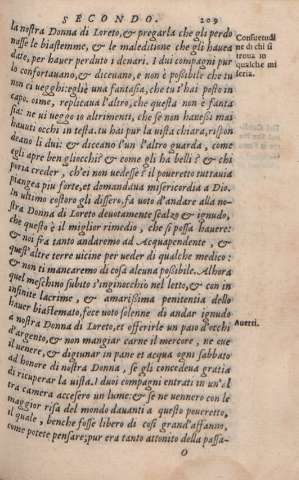 SECONDO. 209
la nostra Donna di Loreto, & pregarla che gli perdo
nasse le biastemme, & le maleditione che gli hauea
date, per hauer perduto i denari. I dui compagni pur
lo confortauano, & diceuano, e non è possibile che tu
non ci uegghi: egliè una fantasia, che tu t'hai posto in
capo. oime, replicaua l'altro, che questa non è fanta
sia: ne ui ueggo io altrimenti, che se non hauessi mai
hauuti occhi in testa. tu hai pur la uista chiara, rispon
deano li dui: & diceano l'un l'altro guarda, come
egli apre ben gliocchi? & come gli ha belli? & chi
poria creder, ch'ei non uedesse? il poueretto tuttauia
piangea piu forte, et domandaua misericordia a Dio.
In ultimo costoro gli dissero, fa uoto d'andare alla no-
stra Donna di Loreto deuotamente scalzo & ignudo,
che questo è il miglior rimedio, che si possa hauere:
& noi fra tanto andaremo ad Acquapendente, &
quest'altre terre uicine per ueder di qualche medico:
& non ti mancaremo di cosa alcuna possibile. Alhora
quel meschino subito s'inginocchiò nel letto, & con in
finite lacrime, & amarissima penitentia dello
hauer biastemato, fece uoto solenne di andar ignudo
a nostra Donna di Loreto, et offerirle un paio d'occhi
d'argento, & non mangiar carne il mercore, ne oue
il uenere, & digiunar in pane et acqua ogni sabbato
ad honore di nostra Donna, se gli concedeua gratia
di ricuperar la uista. I duoi compagni entrati in un'al
tra camera accesero un lume: & se ne uennero con le
maggior risa del mondo dauanti a questo poueretto,
il quale, benche fosse libero di così grand'affanno,
come potete pensare; pur era tanto attonito della passa-
O
Conseruandi
ne di chi si
troua in
qualche mi
seria.